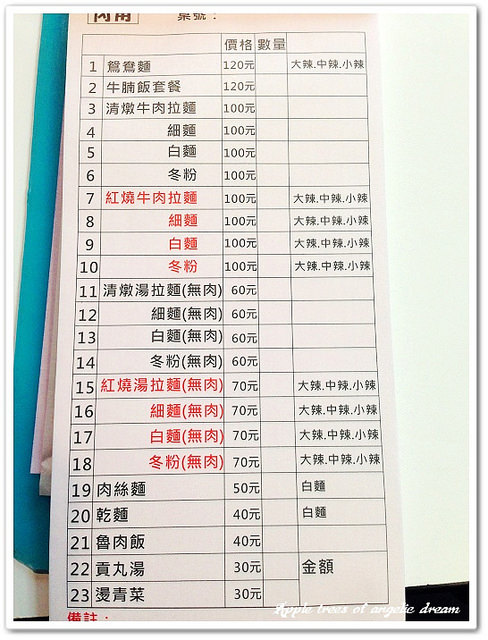 內用 桌號：
價格 數量
1 鴛鴦麵 120元 大辣.中辣.小辣
2 牛腩飯套餐 120元
3 清燉牛肉拉麵 100元
4 細麵 100元
5 白麵 100元
6 冬粉 100元
7 紅燒牛肉拉麵 100元 大辣.中辣.小辣
8 細麵 100元 大辣.中辣.小辣
9 白麵 100元 大辣.中辣.小辣
10 冬粉 100元 大辣.中辣.小辣
11 清燉湯拉麵(無肉) 60元
12 細麵(無肉) 60元
13 白麵(無肉) 60元
14 冬粉(無肉) 60元
15 紅燒湯拉麵(無肉) 70元 大辣.中辣.小辣
16 細麵(無肉) 70元 大辣.中辣.小辣
17 白麵(無肉) 70元 大辣.中辣.小辣
18 冬粉(無肉) 70元 大辣.中辣.小辣
19 肉絲麵 50元 白麵
20 乾麵 40元 白麵
21 魯肉飯 40元
22 貢丸湯 30元 金額
23 燙青菜 30元
備註：
Apple trees of angelic dream